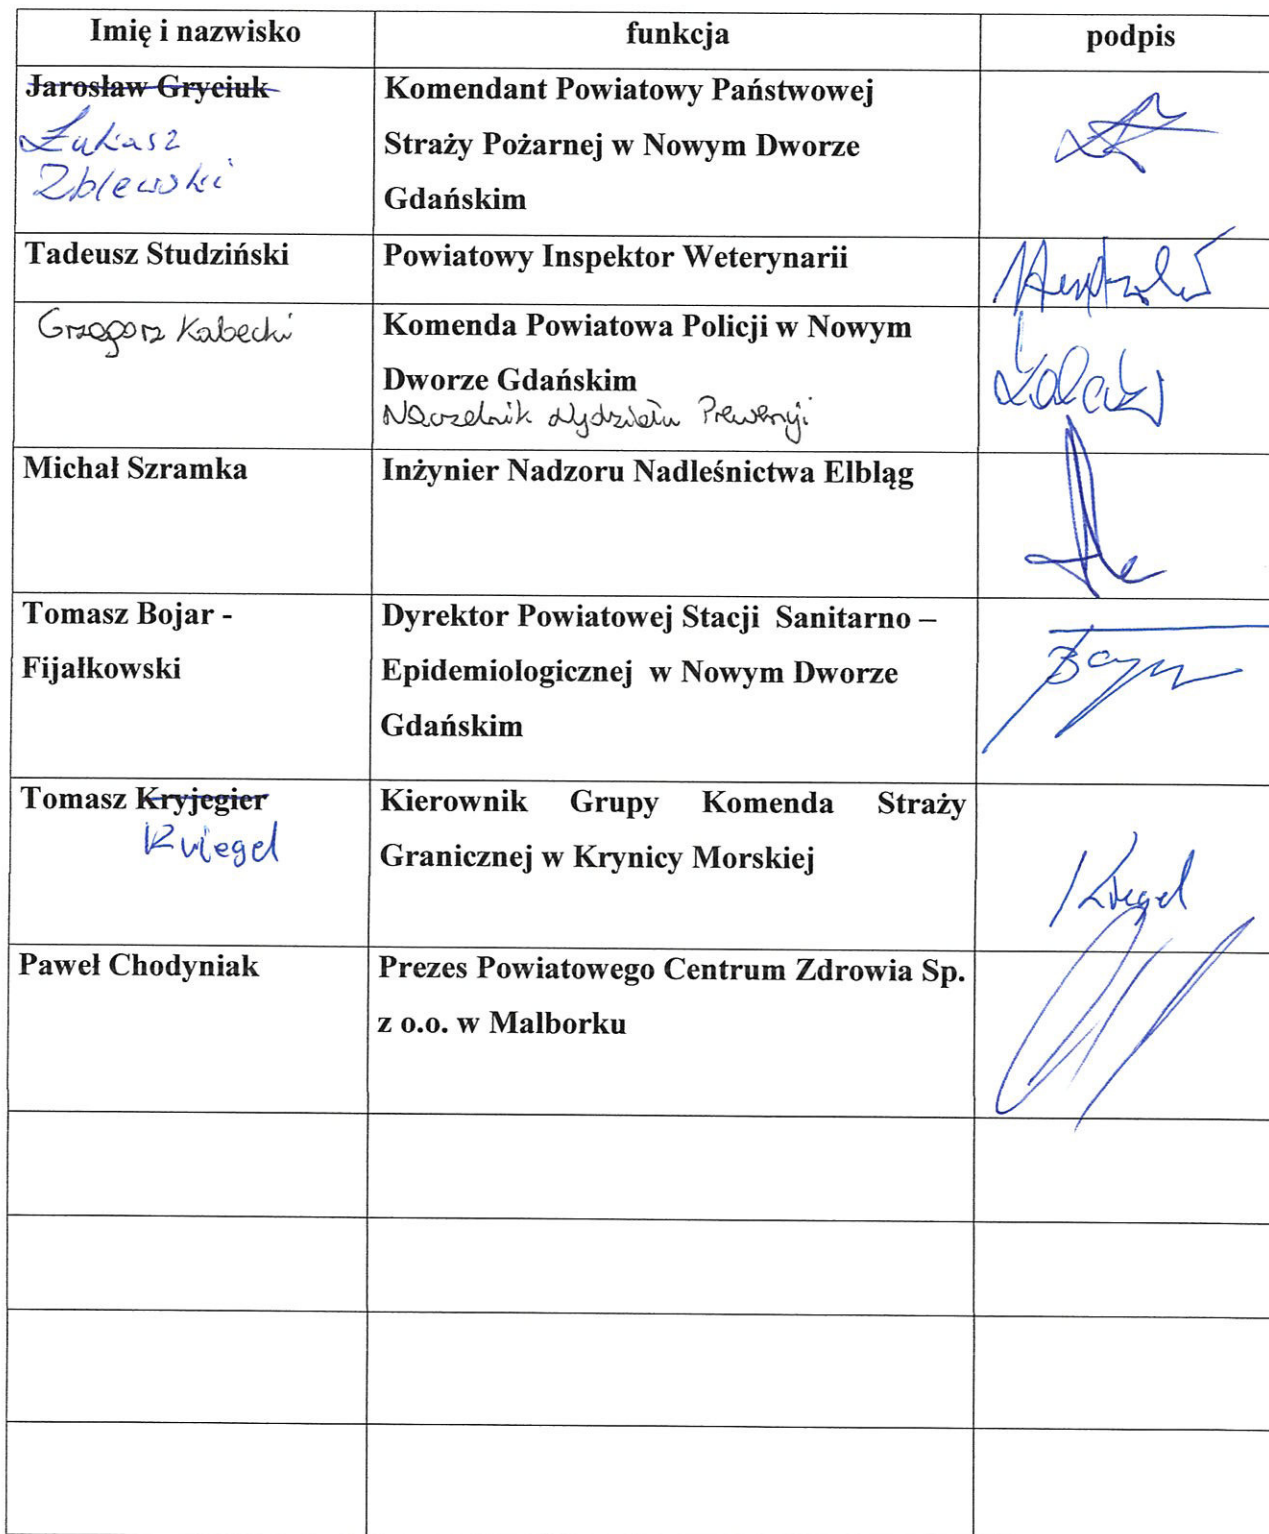 Imię i nazwisko
funkcja
podpis
Jarosław Gryciuk
Łukasz
Zblewski
Komendant Powiatowy Państwowej
Straży Pożarnej w Nowym Dworze
Gdańskim
Tadeusz Studziński
Powiatowy Inspektor Weterynarii
Grzegorz Kabecki
Komenda Powiatowa Policji w Nowym
Dworze Gdańskim
Naczelnik Wydziału Prewencji
Michał Szramka
Inżynier Nadzoru Nadleśnictwa Elbląg
Tomasz Bojar -
Fijałkowski
Dyrektor Powiatowej Stacji Sanitarno –
Epidemiologicznej w Nowym Dworze
Gdańskim
Tomasz Kryjegier
Kriegel
Kierownik Grupy Komenda Straży
Granicznej w Krynicy Morskiej
Kriegel
Paweł Chodyniak
Prezes Powiatowego Centrum Zdrowia Sp.
z o.o. w Malborku